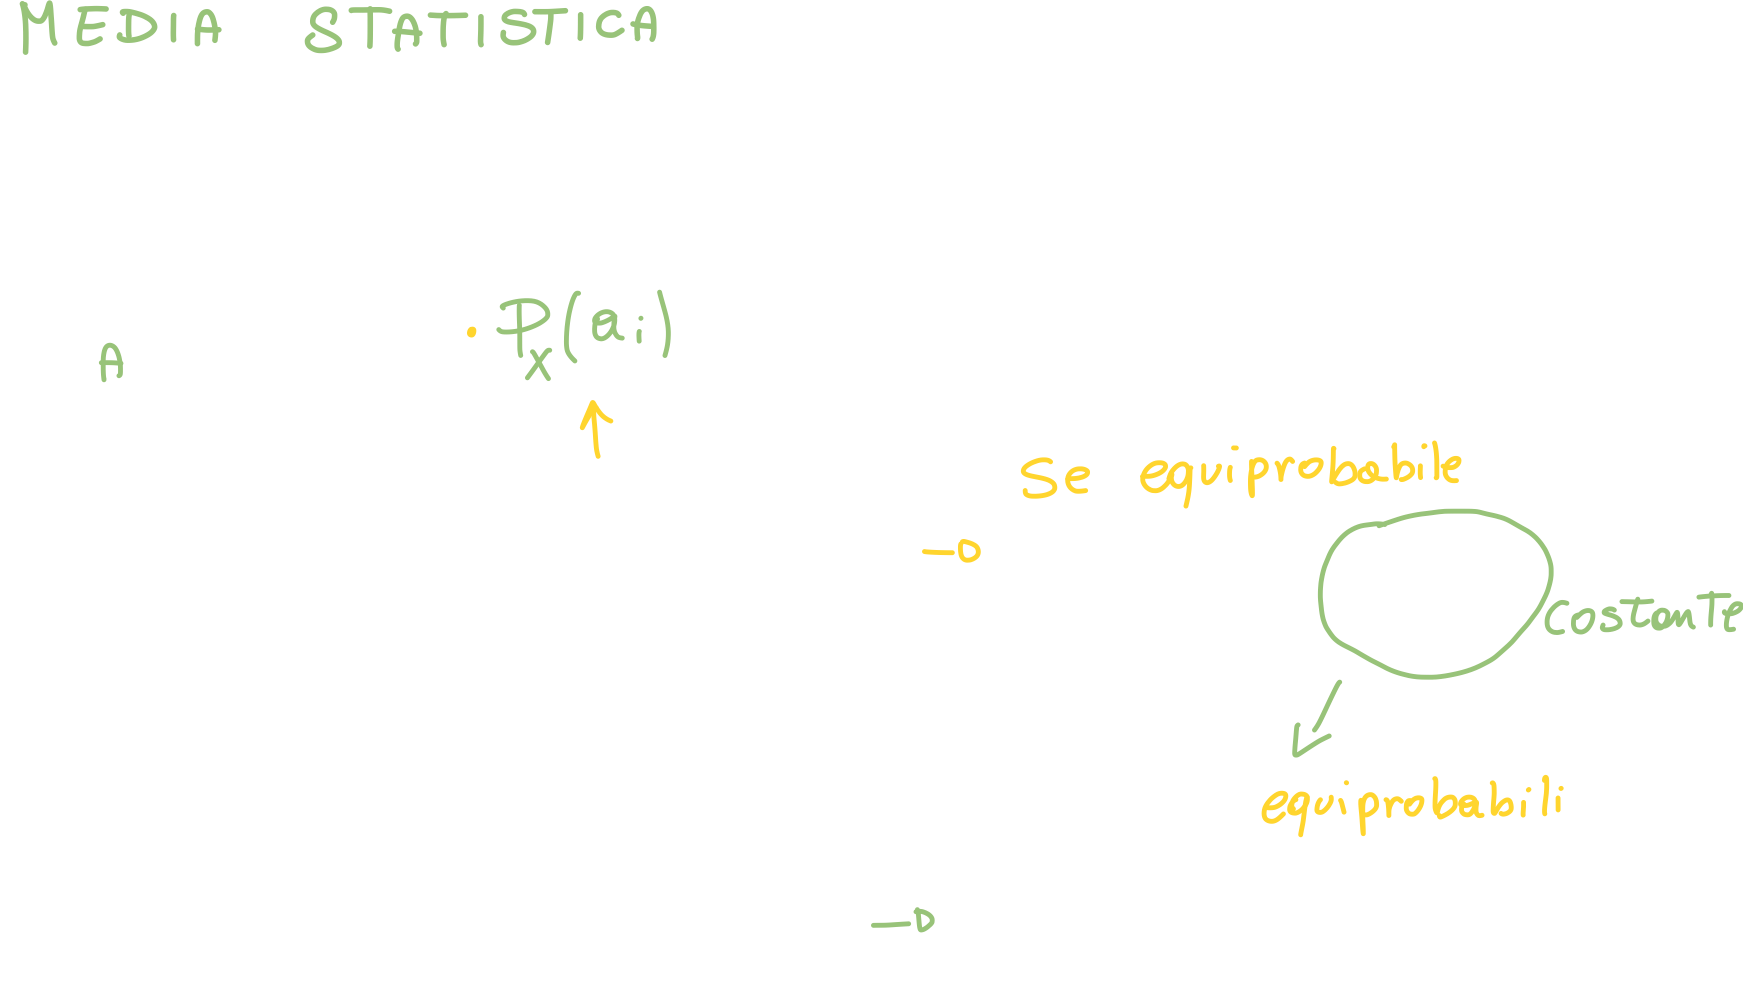 MEDIA STATISTICA
· P_X(ai)
A
Se equiprobabile
costante
equiprobabili